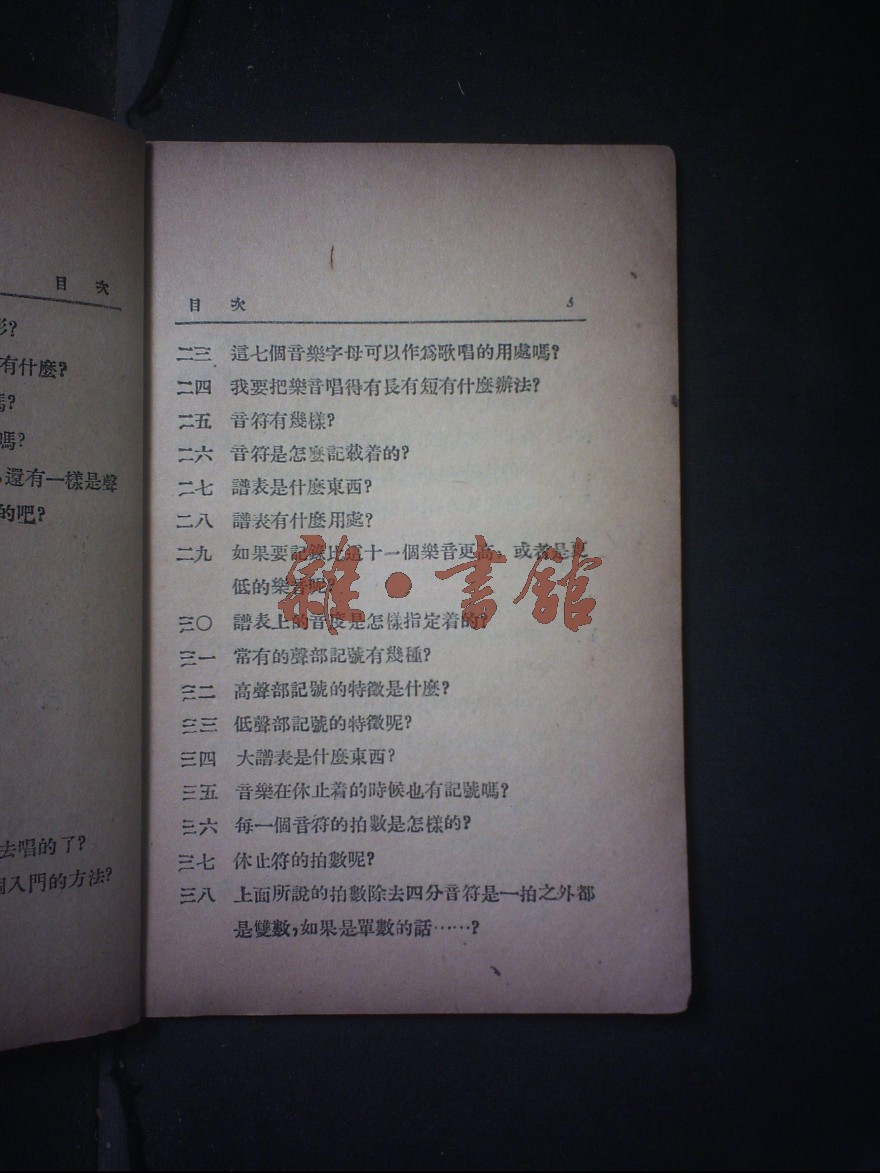 目 次
有什麼?
嗎?
還有一樣是聲
的吧?
去唱的了?
入門的方法?
目 次
二三 這七個音樂字母可以作爲歌唱的用處嗎?
二四 我要把樂音唱得有長有短有什麼辦法?
二五 音符有幾樣?
二六 音符是怎麼記載着的?
二七 譜表是什麼東西?
二八 譜表有什麼用處?
二九 如果要記錄比這十一個樂音更高,或者是更
低的樂音呢?
三〇 譜表上的音度是怎樣指定着的?
三一 常有的聲部記號有幾種?
三二 高聲部記號的特徵是什麼?
三三 低聲部記號的特徵呢?
三四 大譜表是什麼東西?
三五 音樂在休止着的時候也有記號嗎?
三六 每一個音符的拍數是怎樣的?
三七 休止符的拍數呢?
三八 上面所說的拍數除去四分音符是一拍之外都
是雙數,如果是單數的話……?
雜·書館